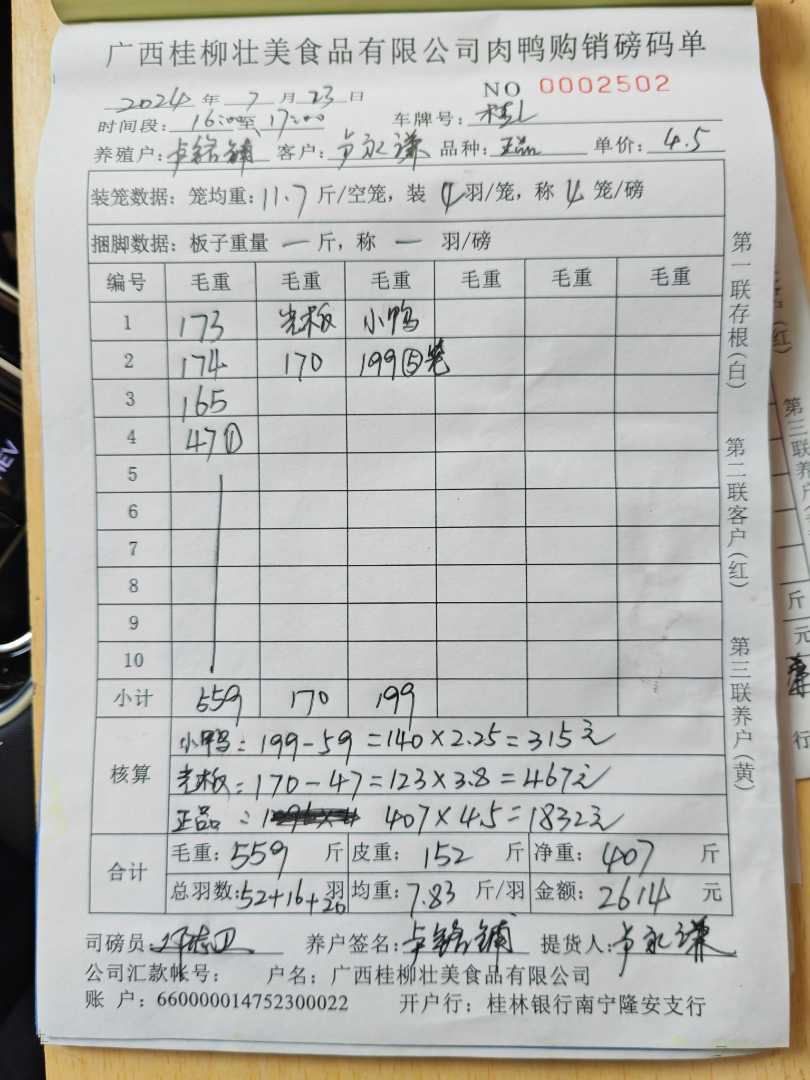 广西桂柳壮美食品有限公司肉鸭购销磅码单
NO 0002502
2024年7月23日
时间段：16:00至17:00 车牌号：桂L
养殖户：卢铭铺 客户：卢永谦 品种：正品 单价：4.5
装笼数据：笼均重：11.7斤/空笼，装4羽/笼，称4笼/磅
捆脚数据：板子重量一斤，称一羽/磅
编号 毛重 毛重 毛重 毛重 毛重 毛重
1 173 光板 小鸭
2 174 170 199⑤笼
3 165
4 47①
5
6
7
8
9
10
小计 559 170 199
核算
小鸭：199-59=140×2.25=315元
光板：170-47=123×3.8=467元
正品：407×4.5=1832元
合计
毛重：559斤 皮重：152斤 净重：407斤
总羽数：52+16+20羽 均重：7.83斤/羽 金额：2614元
司磅员 养户签名：卢铭铺 提货人：卢永谦
公司汇款帐号： 户名：广西桂柳壮美食品有限公司
账户：660000014752300022 开户行：桂林银行南宁隆安支行
第一联存根(白)
第二联客户(红)
第三联养户(黄)
(红)
第三联养户
斤
元
行